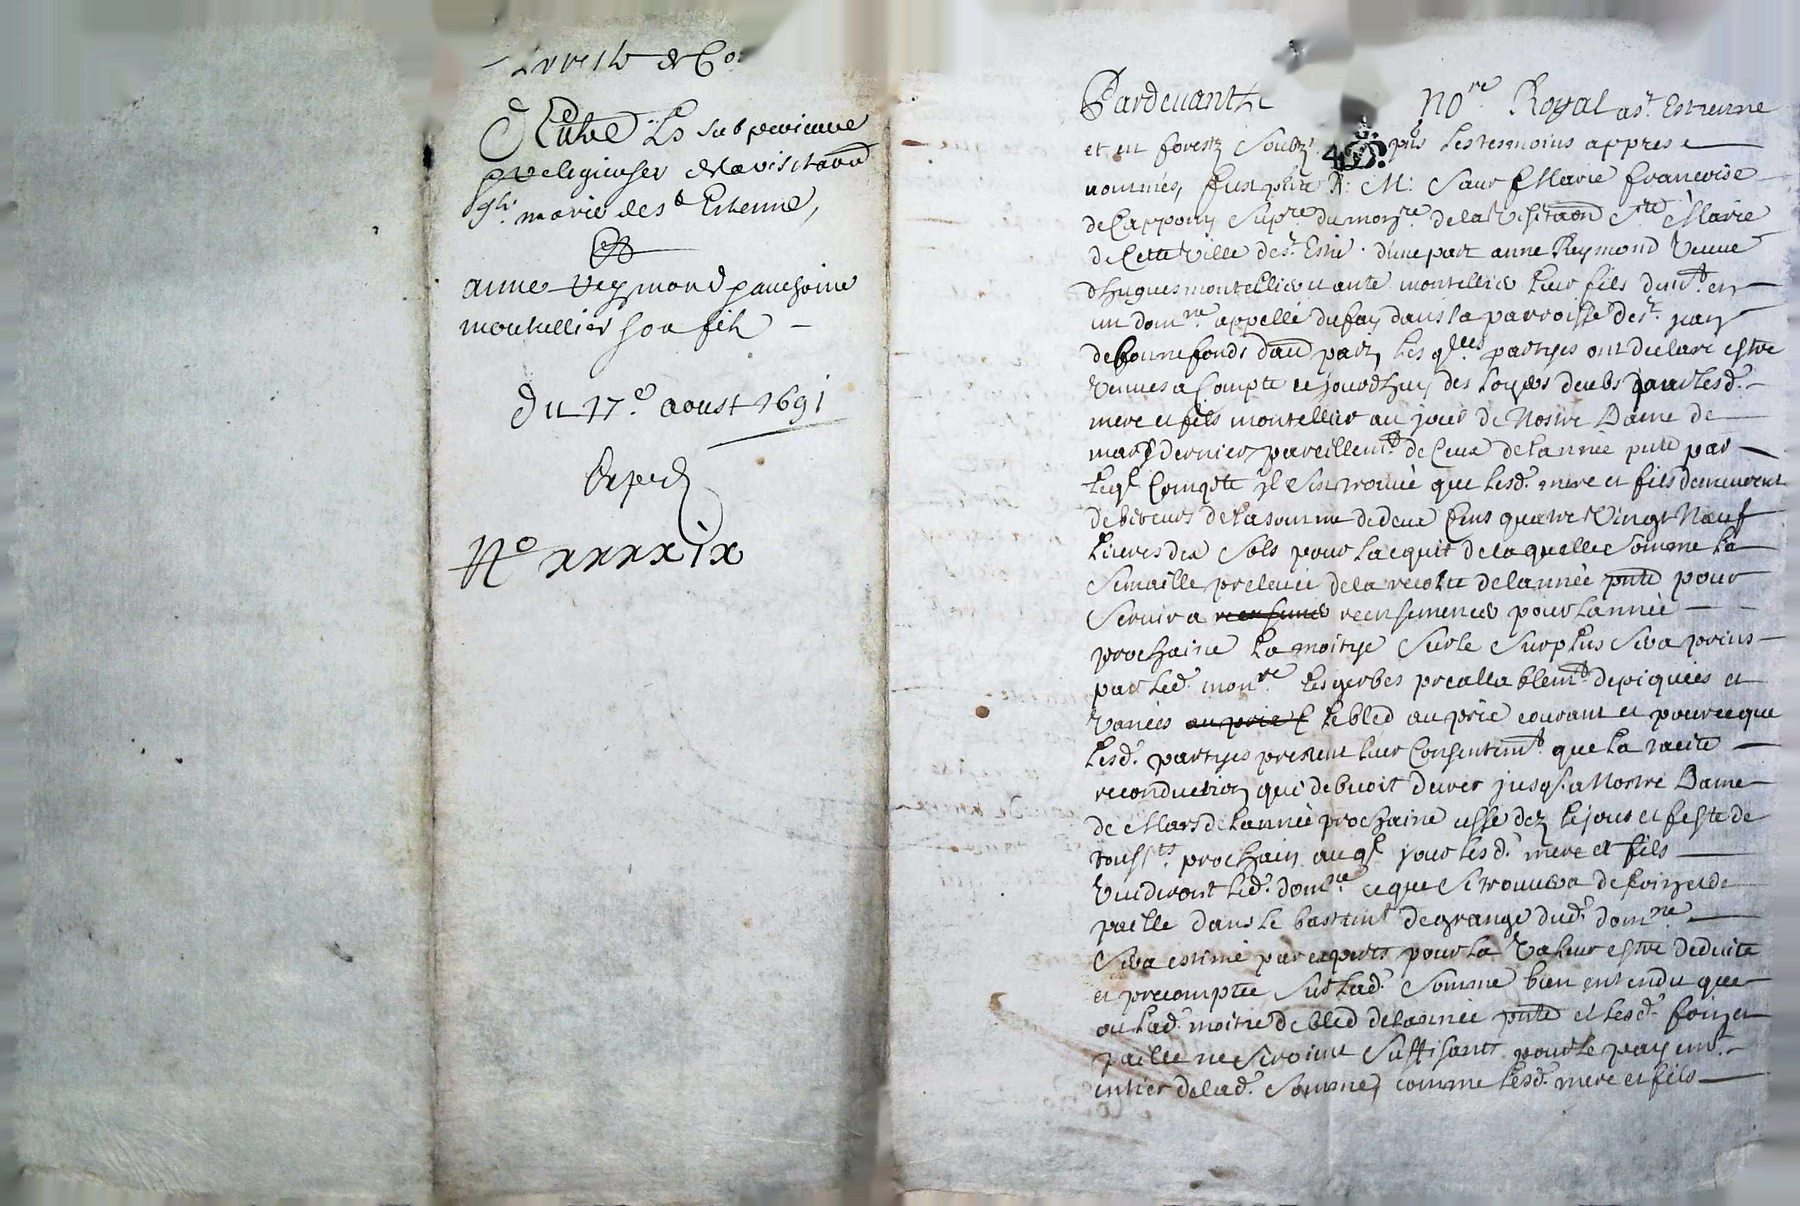 Entre Les superieure
religieuses de la visitaon
Ste marie de st Estienne,
Et
anne reymond et anthoine
montellier son fils
du 17e aoust 1691
Exped
No xxxxix
Pardevant le no.re Royal a st Estienne
et en forestz soubz.né pnts les tesmoins appres
nommés, fust pnte R: M: Sœur Marie francoise
de Cappony sup.re du mon.re de la visitaon S.te Marie
de Cette ville de st Estie. d'une part anne Reymond veuve
d'hugues montellier et ante montellier leur fils dem.t en
un dom.ne appellé du fay dans la parroisse de st. jean
de bonnefonds d'au part, les q.lles partyes ont declaré estre
venues a Compte ce jourdhuy des loyers deubs par lesd.
mere et fils montellier au jour de Nostre Dame de
mars dernier, pareillem.t de Ceux de l'année pnte par
leq.l Compte il s'est trouvé que lesd. mere et fils demeurent
debiteurs de la somme de deux Cens quatre vingt Neuf
livres dix sols pour l'acquit de laquelle somme la
semaille prelevée de la recolte de l'année pnte pour
servir a reensemencer pour l'année
prochaine la moitye sur le surplus sera prins
par led. mon.re les gerbes preallablem.t depiquées et
vanées au prix le bled au prix courant et pour ce que
lesd. partyes prestent leur Consentem.t que la tacite
reconduction qui debvoit durer jusq. a Nostre Dame
de Mars de l'année prochaine cesse dez le jour et feste de
touss.ts prochain auq.l jour lesd. mere et fils
vuideront led. dom.ne ce que se trouvera de foin et de
paille dans le bastim.t de grange dud. dom.ne
sera estimé par experts pour la valeur estre deduite
et precomptée sur lad. somme bien entendu que
ou lad. moitié de bled de l'année pnte et lesd. foin et
paille ne seroint suffisants pour le payem.t
entier de lad. somme, comme lesd. mere et fils